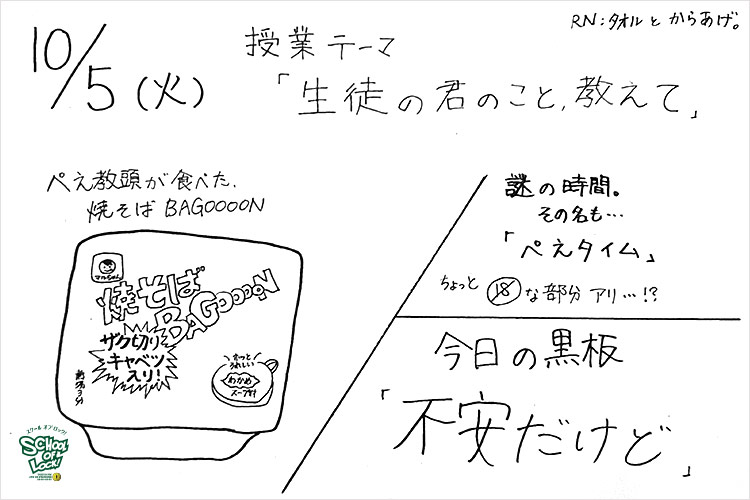 RN:タオルとからあげ。
10/5(火)
授業テーマ
「生徒の君のこと、教えて」
ぺえ教頭が食べた、
焼そば BAGOOOON
マルちゃん
焼そば
BAGOOOON
ザク切り
キャベツ
入り!
熱湯3分
もっと
うれしい
わかめ
スープ付
謎の時間。
その名も…
「ぺえタイム」
ちょっと ⑱な部分アリ…!?
今日の黒板
「不安だけど」
スクール オブ ロック!
SCHOOL
OF
LOCK!